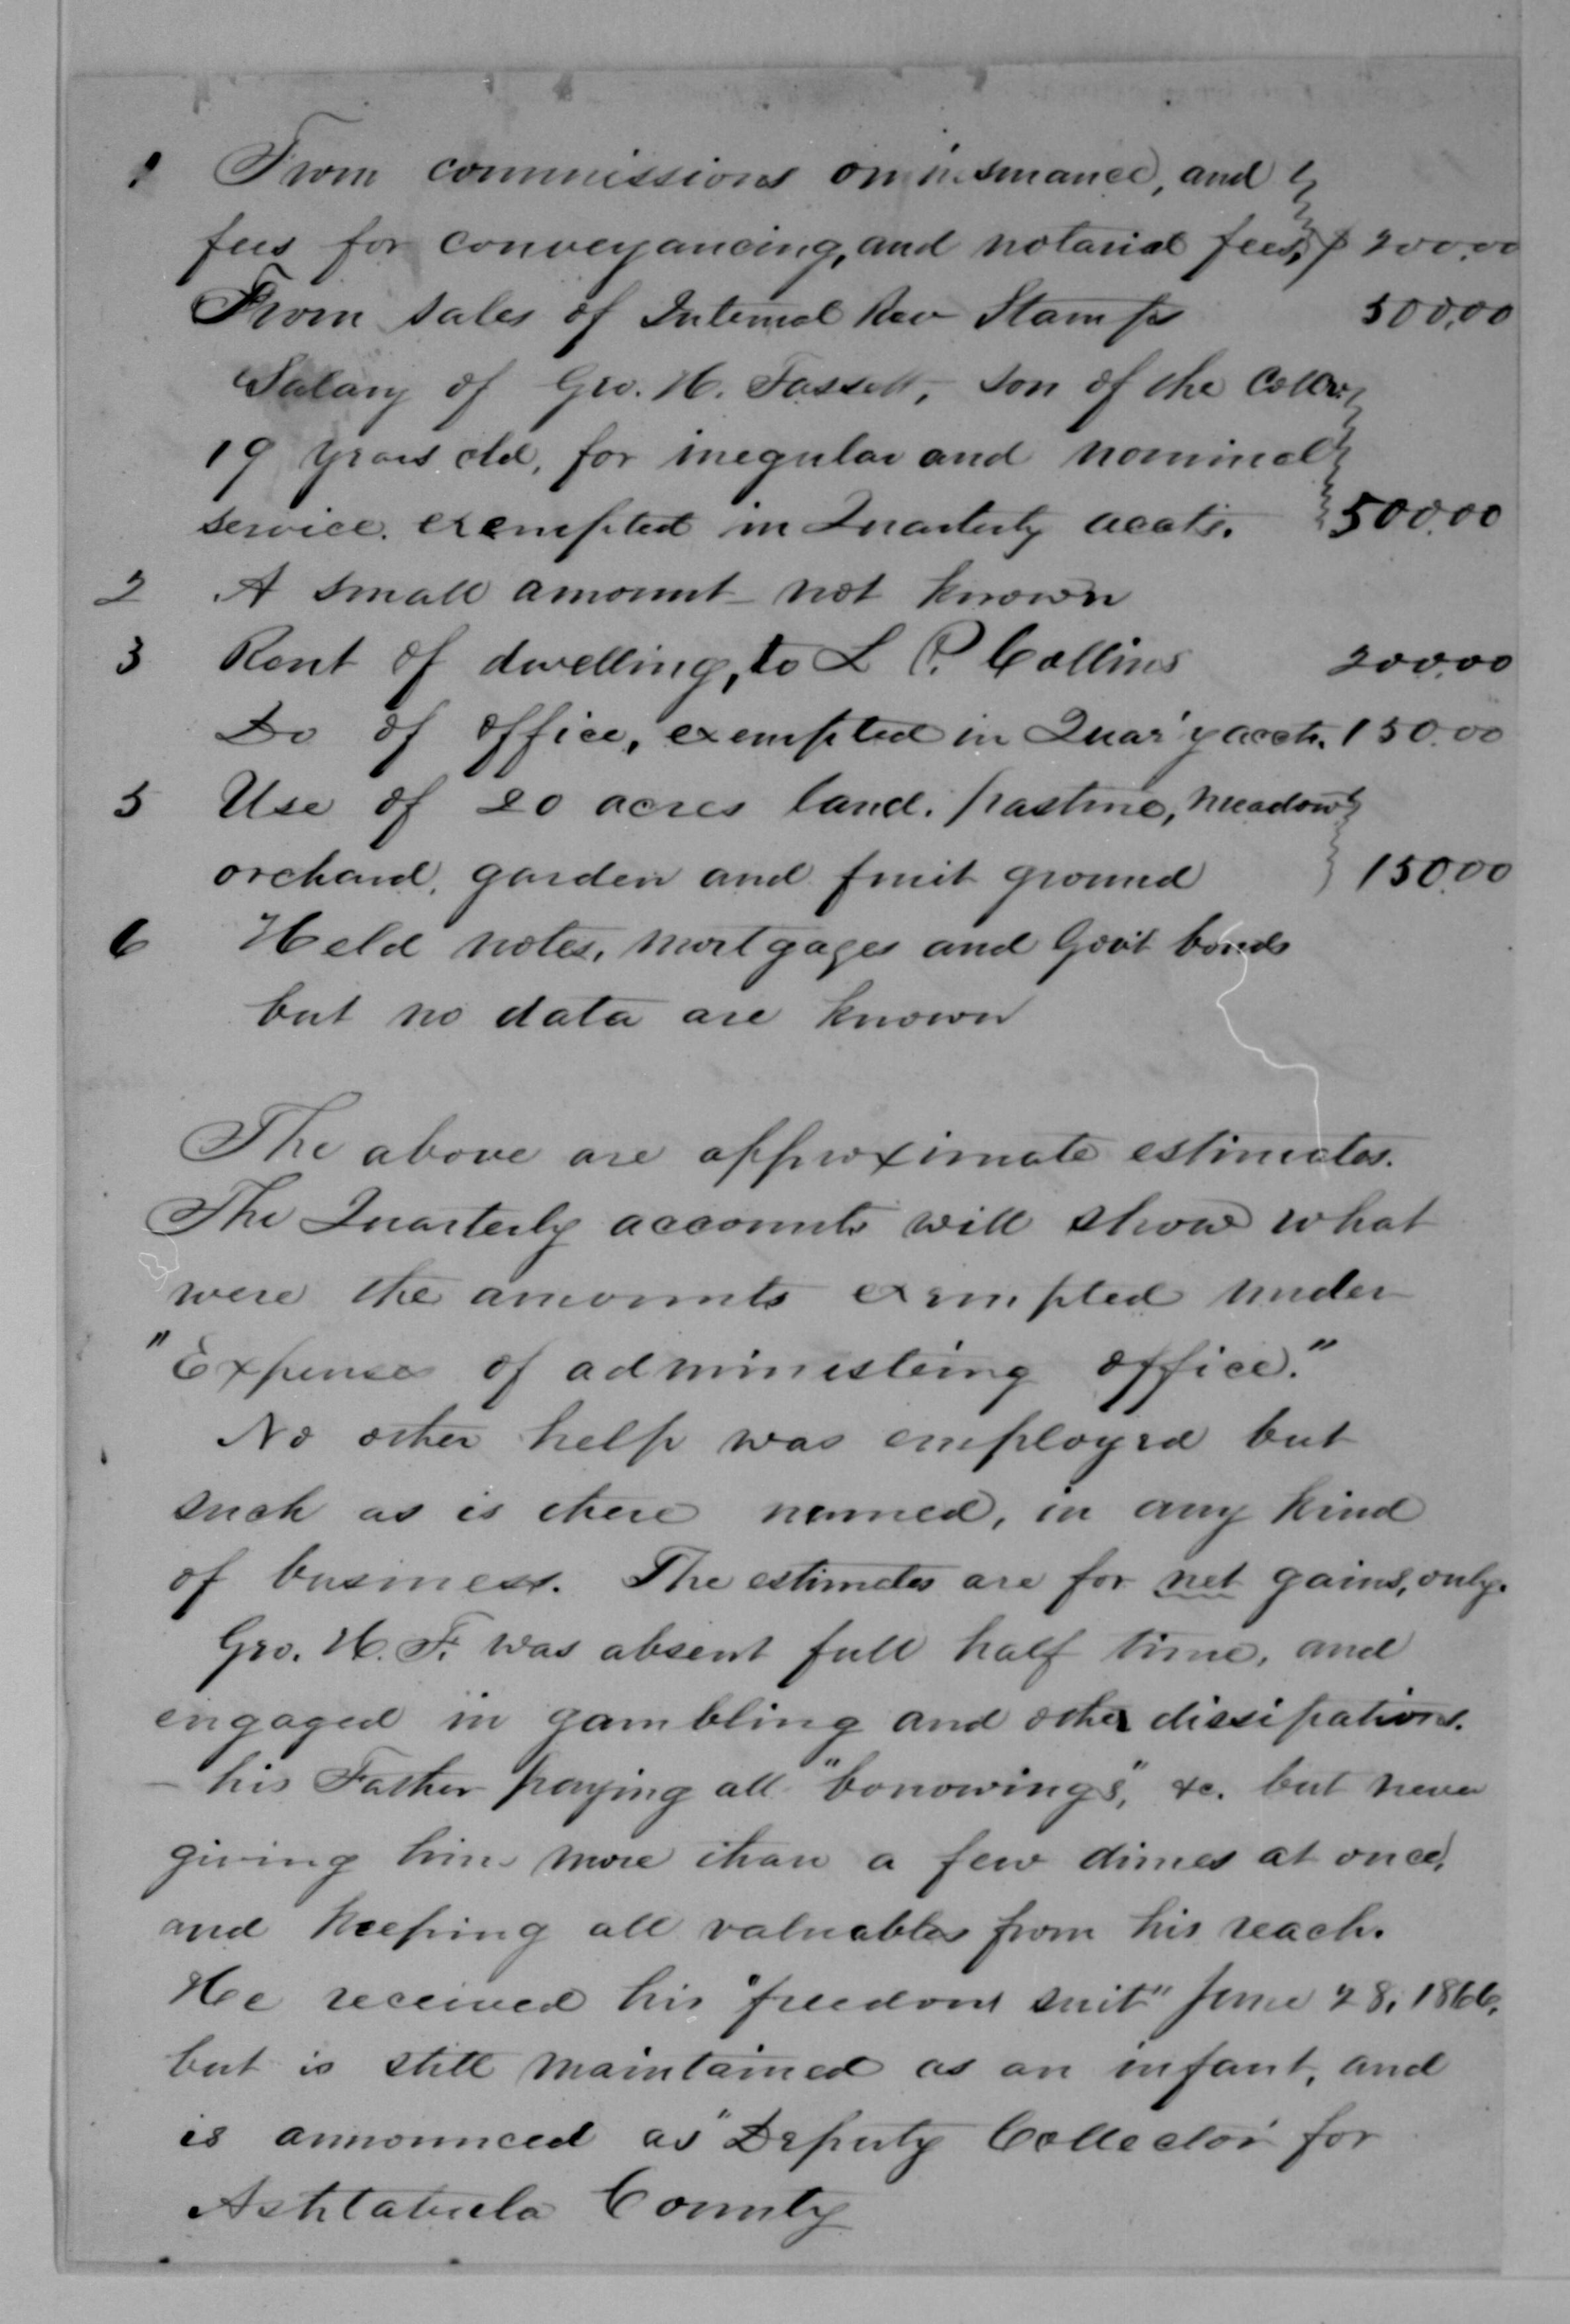 1 From commissions on insurance, and
fees for conveyancing, and notarial fees, $ 200.00
From sales of Internal Rev Stamps 500.00
Salary of Geo. H. Fassett, son of the Collr.
19 years old, for irregular and nominal
service. exempted in Quarterly accts. 500.00
2 A small amount not known
3 Rent of dwelling, to L P. Collins 200.00
Do of office, exempted in Quar'y accts. 150.00
5 Use of 20 acres land. pasture, meadow
orchard, garden and fruit ground 150.00
6 Held notes, mortgages and Gov't bonds
but no data are known
The above are approximate estimates.
The Quarterly accounts will show what
were the amounts exempted under
"Expenses of administering office."
No other help was employed but
such as is there named, in any kind
of business. The estimates are for net gains, only.
Geo. H. F. was absent full half time, and
engaged in gambling and other dissipations.
– his Father paying all "borrowings", &c. but never
giving him more than a few dimes at once,
and keeping all valuables from his reach.
He received his "freedom suit" June 28, 1866,
but is still maintained as an infant, and
is announced as "Deputy Collector for
Ashtabula County